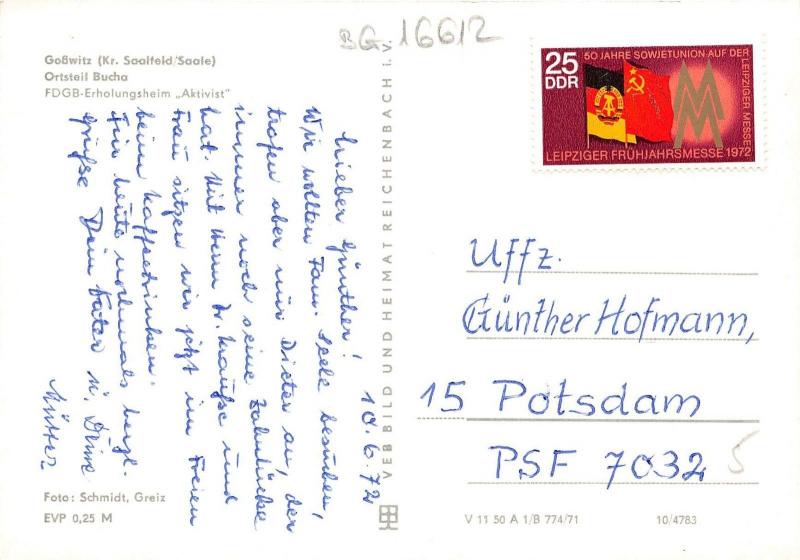 BG 16612
Goßwitz (Kr. Saalfeld/Saale)
Ortsteil Bucha
FDGB-Erholungsheim „Aktivist"
10.6.72
Lieber Günther!
Wir wollten Fam. Seele besuchen,
trafen aber nur Dieter an, der
immer noch seine Zahnlücke
hat. Mit Herrn Dr. und
Frau sitzen wir jetzt im Freien
beim Kaffeetrinken.
Für heute nochmals herzl.
Grüße Dein Vater u. Deine
Mutter
Foto: Schmidt, Greiz
EVP 0,25 M
VEB BILD UND HEIMAT REICHENBACH I. V.
25
DDR
50 JAHRE SOWJETUNION AUF DER
LEIPZIGER MESSE
LEIPZIGER FRÜHJAHRSMESSE 1972
Uffz.
Günther Hofmann,
15 Potsdam
PSF 7032
5
V 11 50 A 1/B 774/71
10/4783